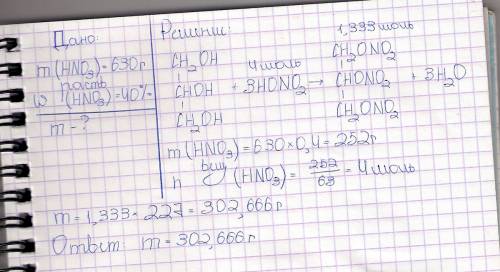 Дано:
m(HNO₃) = 630 г
раств
w (HNO₃) = 40%
m - ?
Решение:
4 моль 1,333 моль
CH₂OH CH₂ONO₂
CHOH + 3HONO₂ → CHONO₂ + 3H₂O
CH₂OH CH₂ONO₂
m(HNO₃) = 630 × 0,4 = 252 г
n (HNO₃) = 252/63 = 4 моль
m = 1,333 · 227 = 302,666 г
Ответ: m = 302,666 г